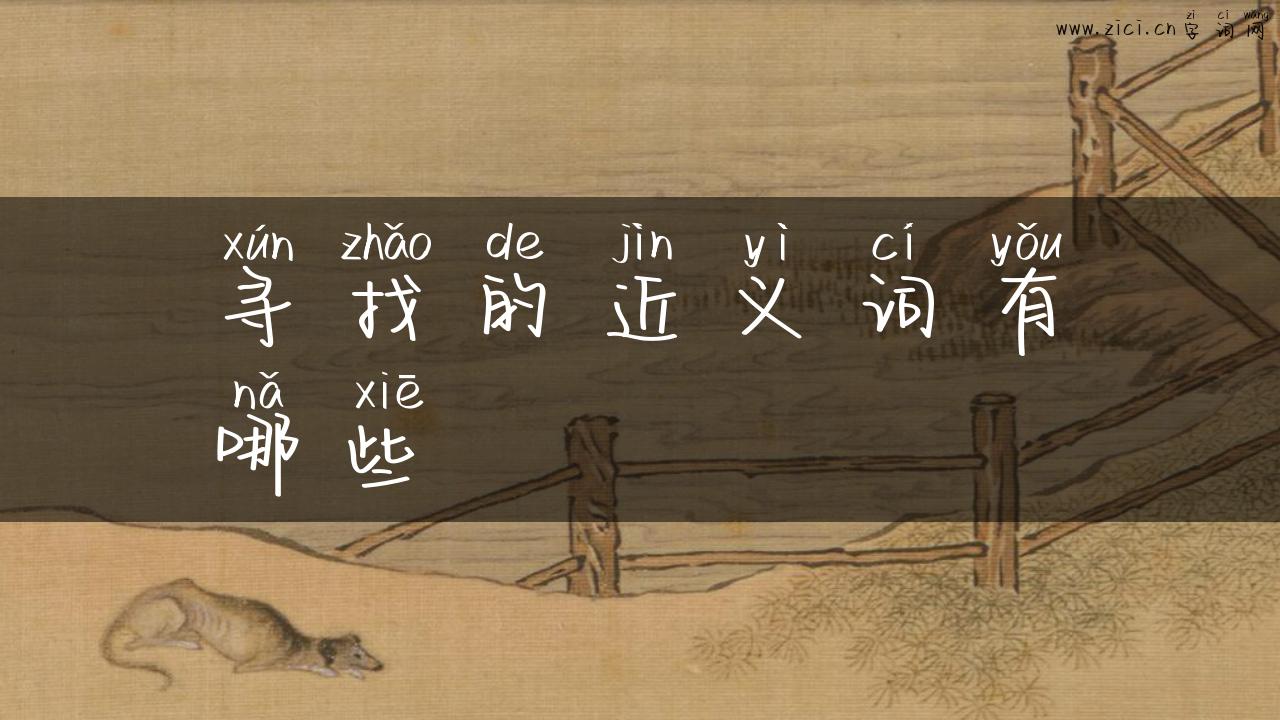 zi ci wang
www.zici.cn 字词网
xún zhǎo de jìn yì cí yǒu
寻找的近义词有
nǎ xiē
哪些